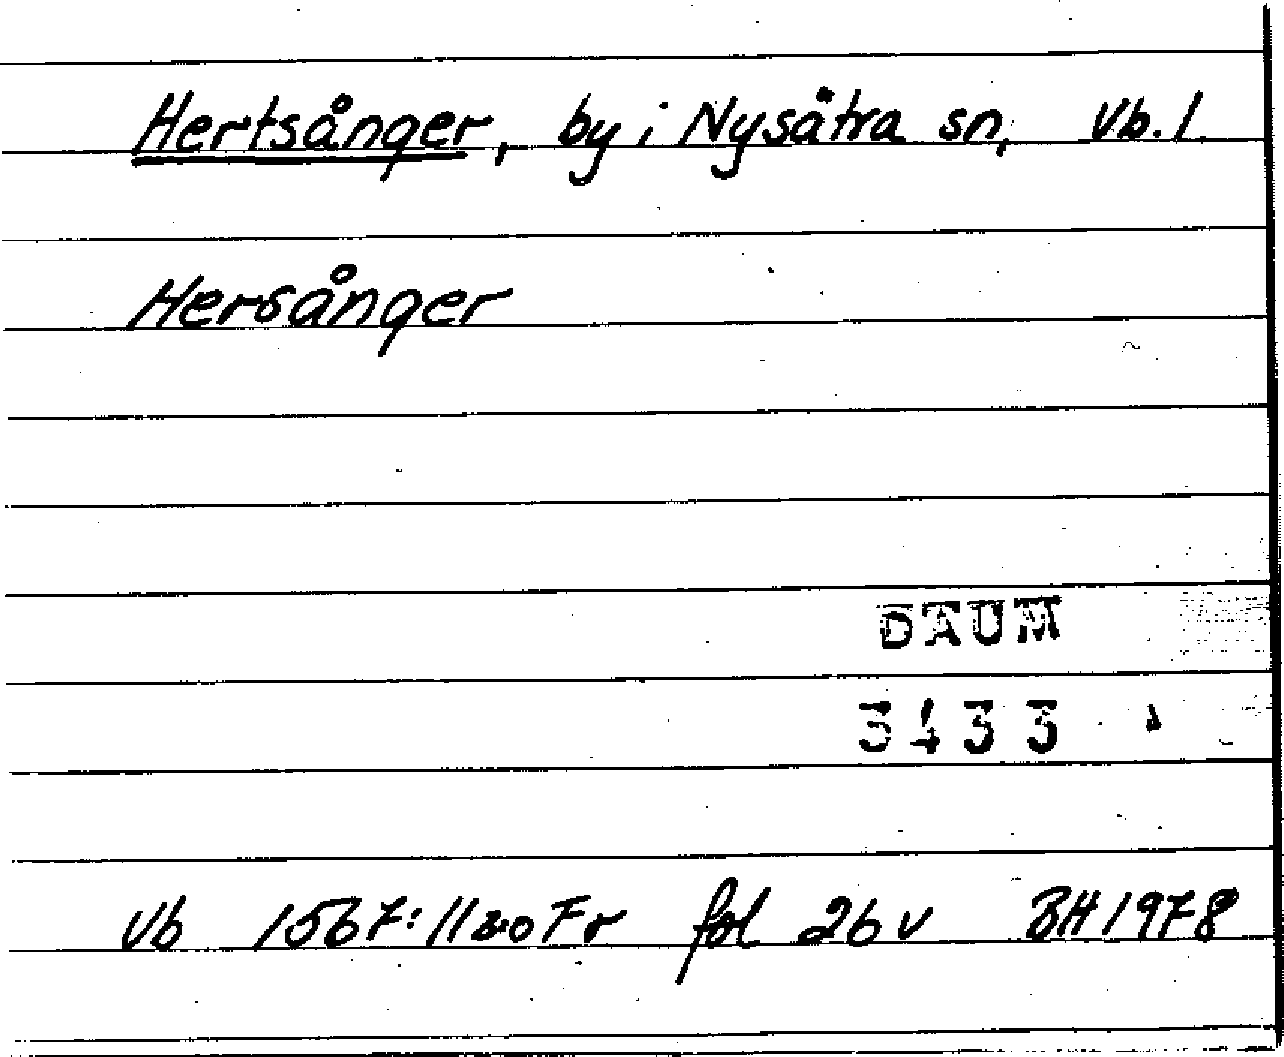 Hertsånger, by i Nysätra sn, Vb. l.
Hersånger
DAUM
3433
Vb 1567:11 20 Fr fol 26 v BH 1978